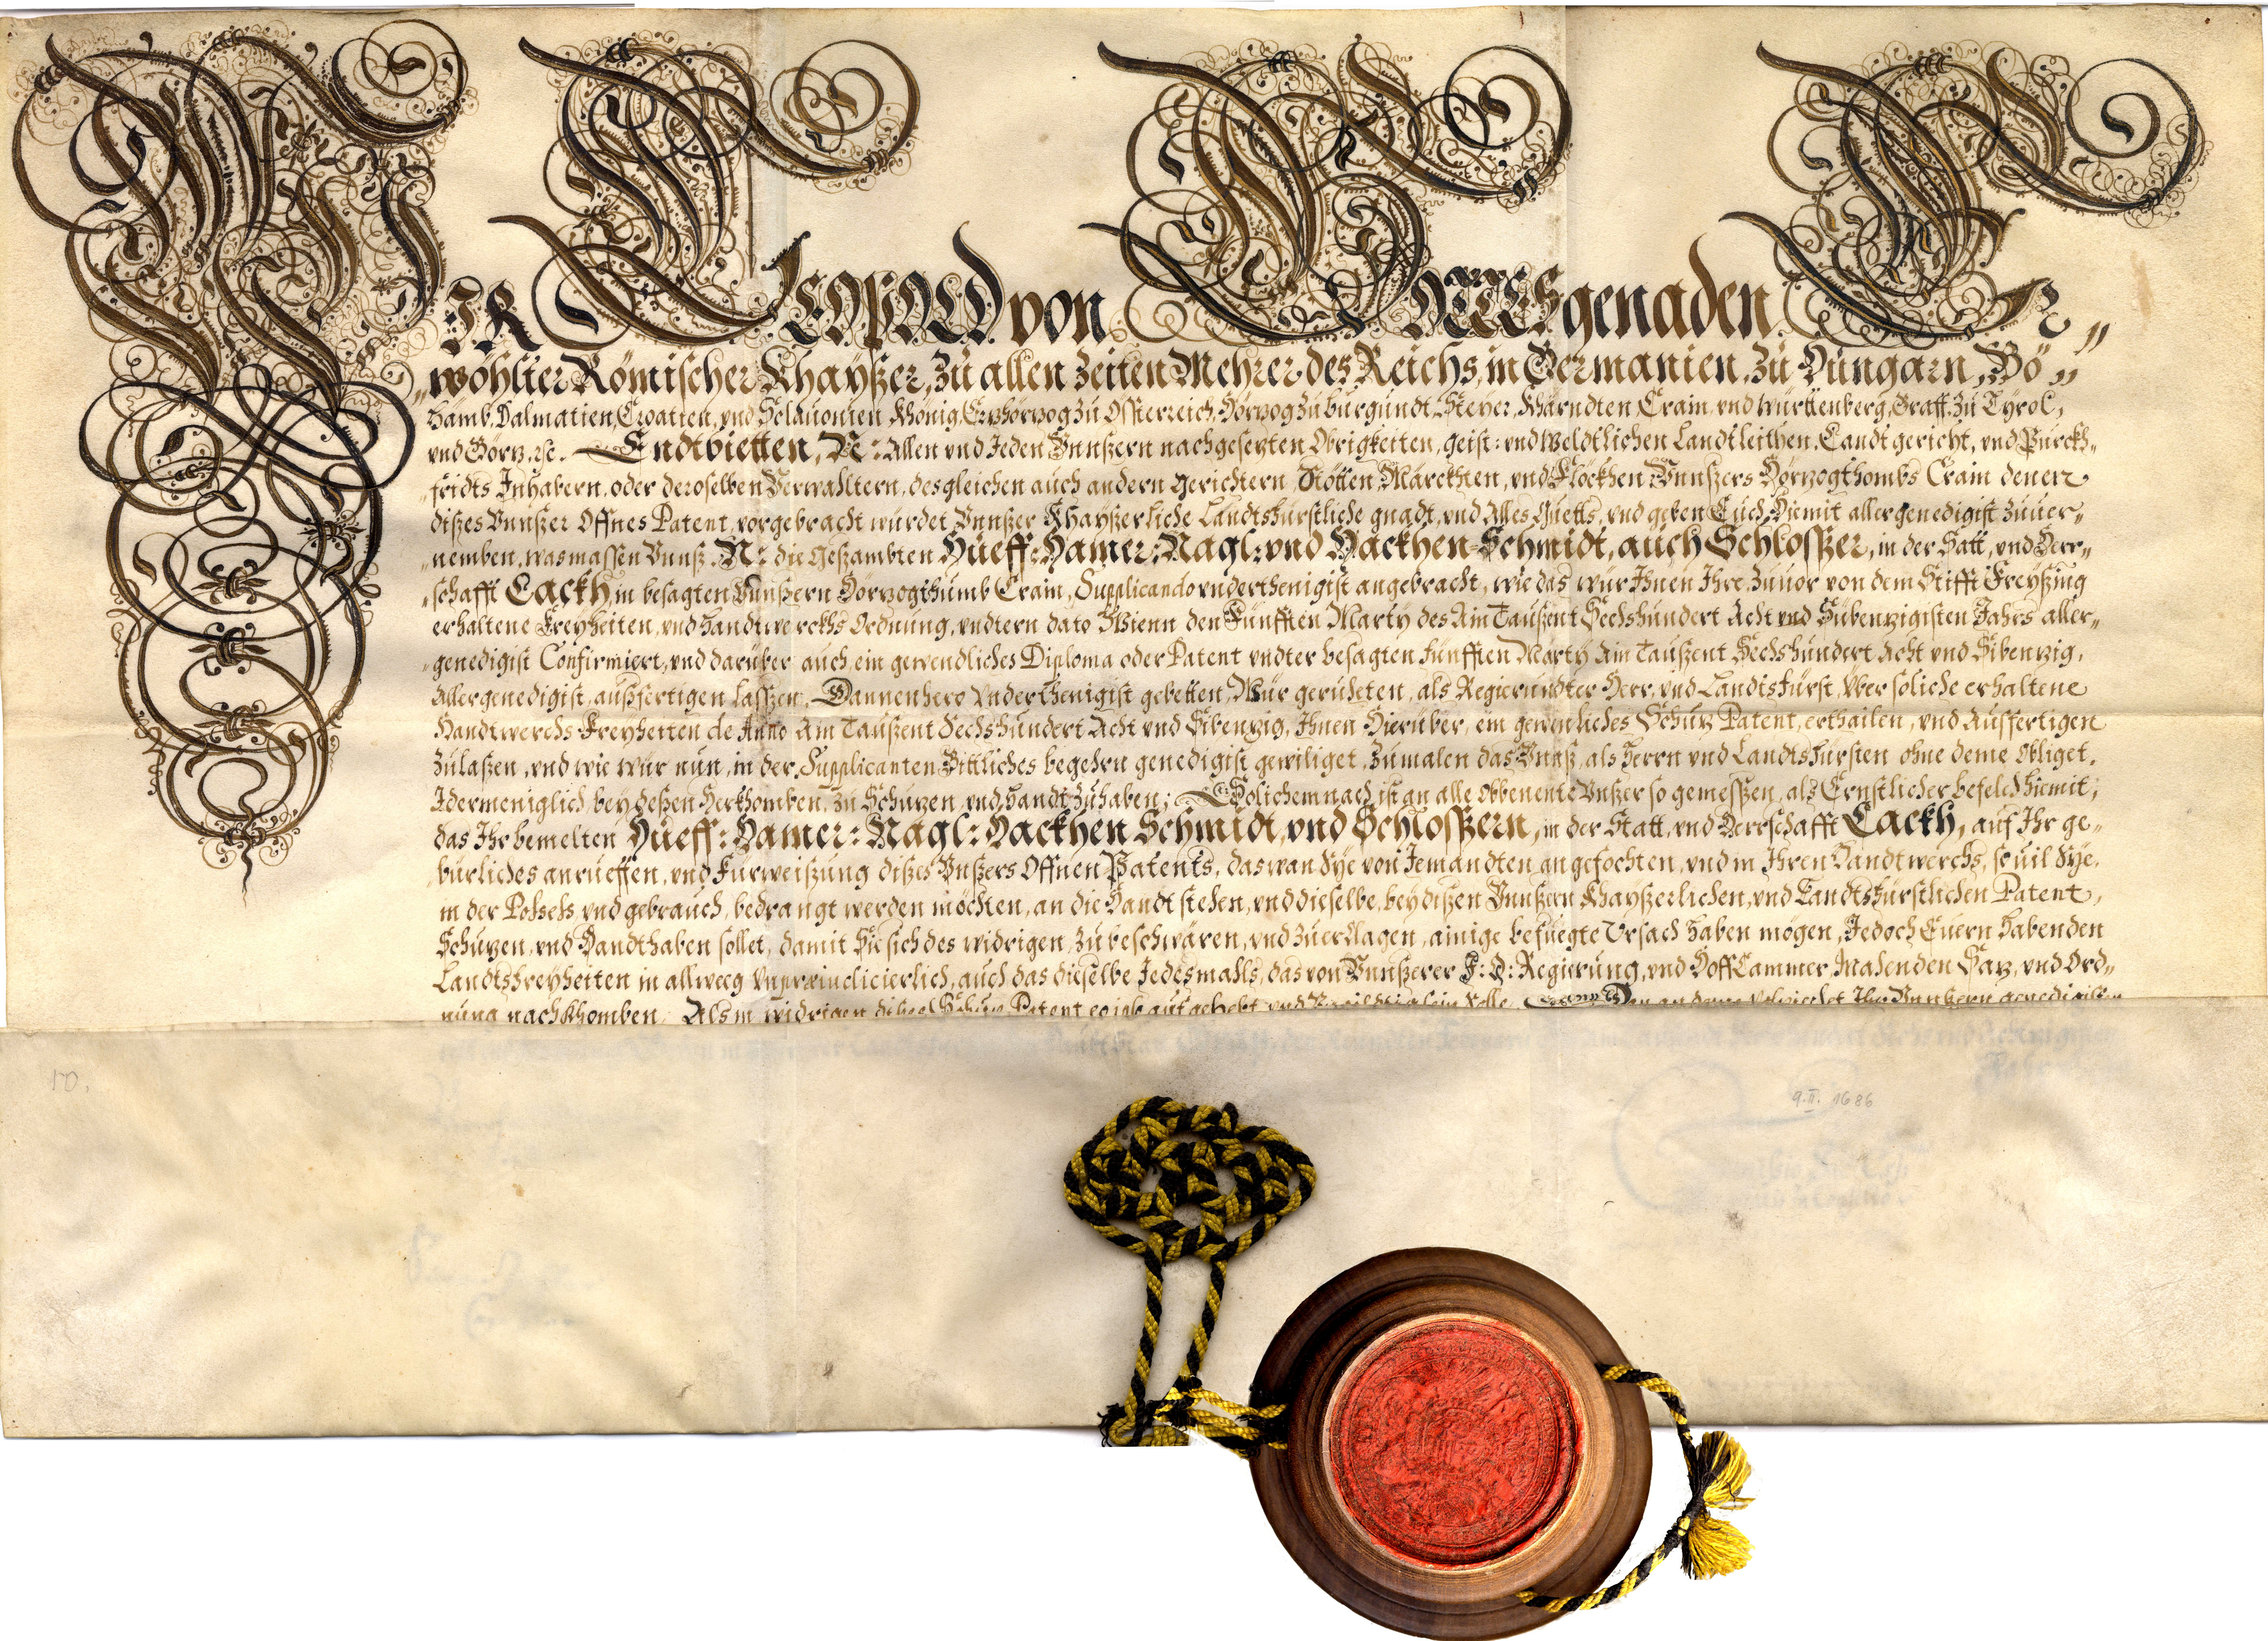 WIR LEOPOLD von GOTTES genaden Er„
„wöhlter Römischer Khayßer, zu allen Zeiten Mehrer des Reichs, in Germanien, zu Hungarn, Bö„
haimb, Dalmatien, Croatien, und Sclauonien König, Erzhörzog zu Össterreich, Hörzog zu burgundt, Steyer, Khärndten, Crain, und Württenberg, Graff zu Tyrol,
und Görz. ꝛc. Endtbietten, N: Allen und Jeden Vnnßern nachgesezten Obrigkeiten, geist: und Weldtlichen Landtleithen, Landtgericht, und Purckh„
„fridts Inhabern, oder deroselben Verwaltern, desgleichen auch andern Gerichtern, Stötten, Märckhten, und Flöckhen Vnnßers Hörzogthombs Crain denen
dißes Vnnßer Offnes Patent, vorgebracht würdet, Vnnßer Khayßerliche Landtsfürstliche gnadt, und Alles Guetts, und geben Euch Hiemit allergenedigist zuuer„
„nemben, was massen Vnnß, N: die Gesambten Hueff: Hamer: Nagl: und Hackhen-Schmidt, auch Schlosser, in der Statt, und Herr„
„schafft Lackh, in besagten Vnnßern Hörzogthumb Crain, Supplicando vnderthenigist angebracht, wie das wür Ihnen Ihre zuuor von dem Stifft Freyßing
erhaltene Freyheiten, und handtwerckhs Ordnung, undtern dato Wienn den Fünfften Marty des Ain Taußent Sechshundert Acht und Sübenzigisten Jahrs aller„
„genedigist Confirmiert, und darüber auch ein gewendliches Diploma oder Patent undter besagten fünfften Marty Ain Taußent Sechshundert Acht und Sibenzig,
Allergenedigist, außfertigen lassen, Dannenhero Vnderthenigist gebetten, Wür geruheten, als Regierundter Herr, und Landtsfürst, über soliche erhaltene
Handtwerchs Freyheiten de Anno Ain Taußent Sechshundert Acht und Sibenzig, Ihnen Hierüber, ein gewenliches Schuz Patent, erthailen, und Ausfertigen
zulaßen, und wie wür nun, in der Supplicanten Bittliches begehrn genedigist gewiliget, zumalen das Vnnß, als Herrn und Landtsfürsten ohne deme Obliget,
Idermeniglich, bey deßen Herkhomben, zu Schuzen, und handt zuhaben; Solichemnach ist an alle Obbenente Vnßer so gemessen, als Ernstlicher befelch hiemit,
das Ihr bemelten Hueff: Hamer: Nagl: Hackhen Schmidt, und Schlossern, in der Statt, und Herrschafft Lackh, auf Ihr ge„
„bürliches anrueffen, und Fürweißung dißes Vnßers Offnen Patents, das wan Sye von Jemandten angefochten, und in Ihren Handtwerchs, so uil Sye,
in der Possess, und gebrauch, bedrangt werden möchten, an die Handt stehen, und dieselbe, bey dißen Vnnßern Khayßerlichen, und Landtsfürstlichen Patent,
Schuzen, und Handthaben sollet, damit Sie sich des widrigen, zu beschwären, und zu erclagen, ainige befuegte Ursach haben mögen, Jedoch Euern habenden
Landtsfreyheiten in allweeg Vnpræiudicierlich, auch das dieselbe Jedesmahls, das von Vnnßerer I: Ö: Regierung, und Hoff Cammer, Mahenden Saz, und Ord„
nung nachkhomben, Als in widrigen dißes Schuz Patent aufgehebt und sein solle.
10.
9. II. 1686